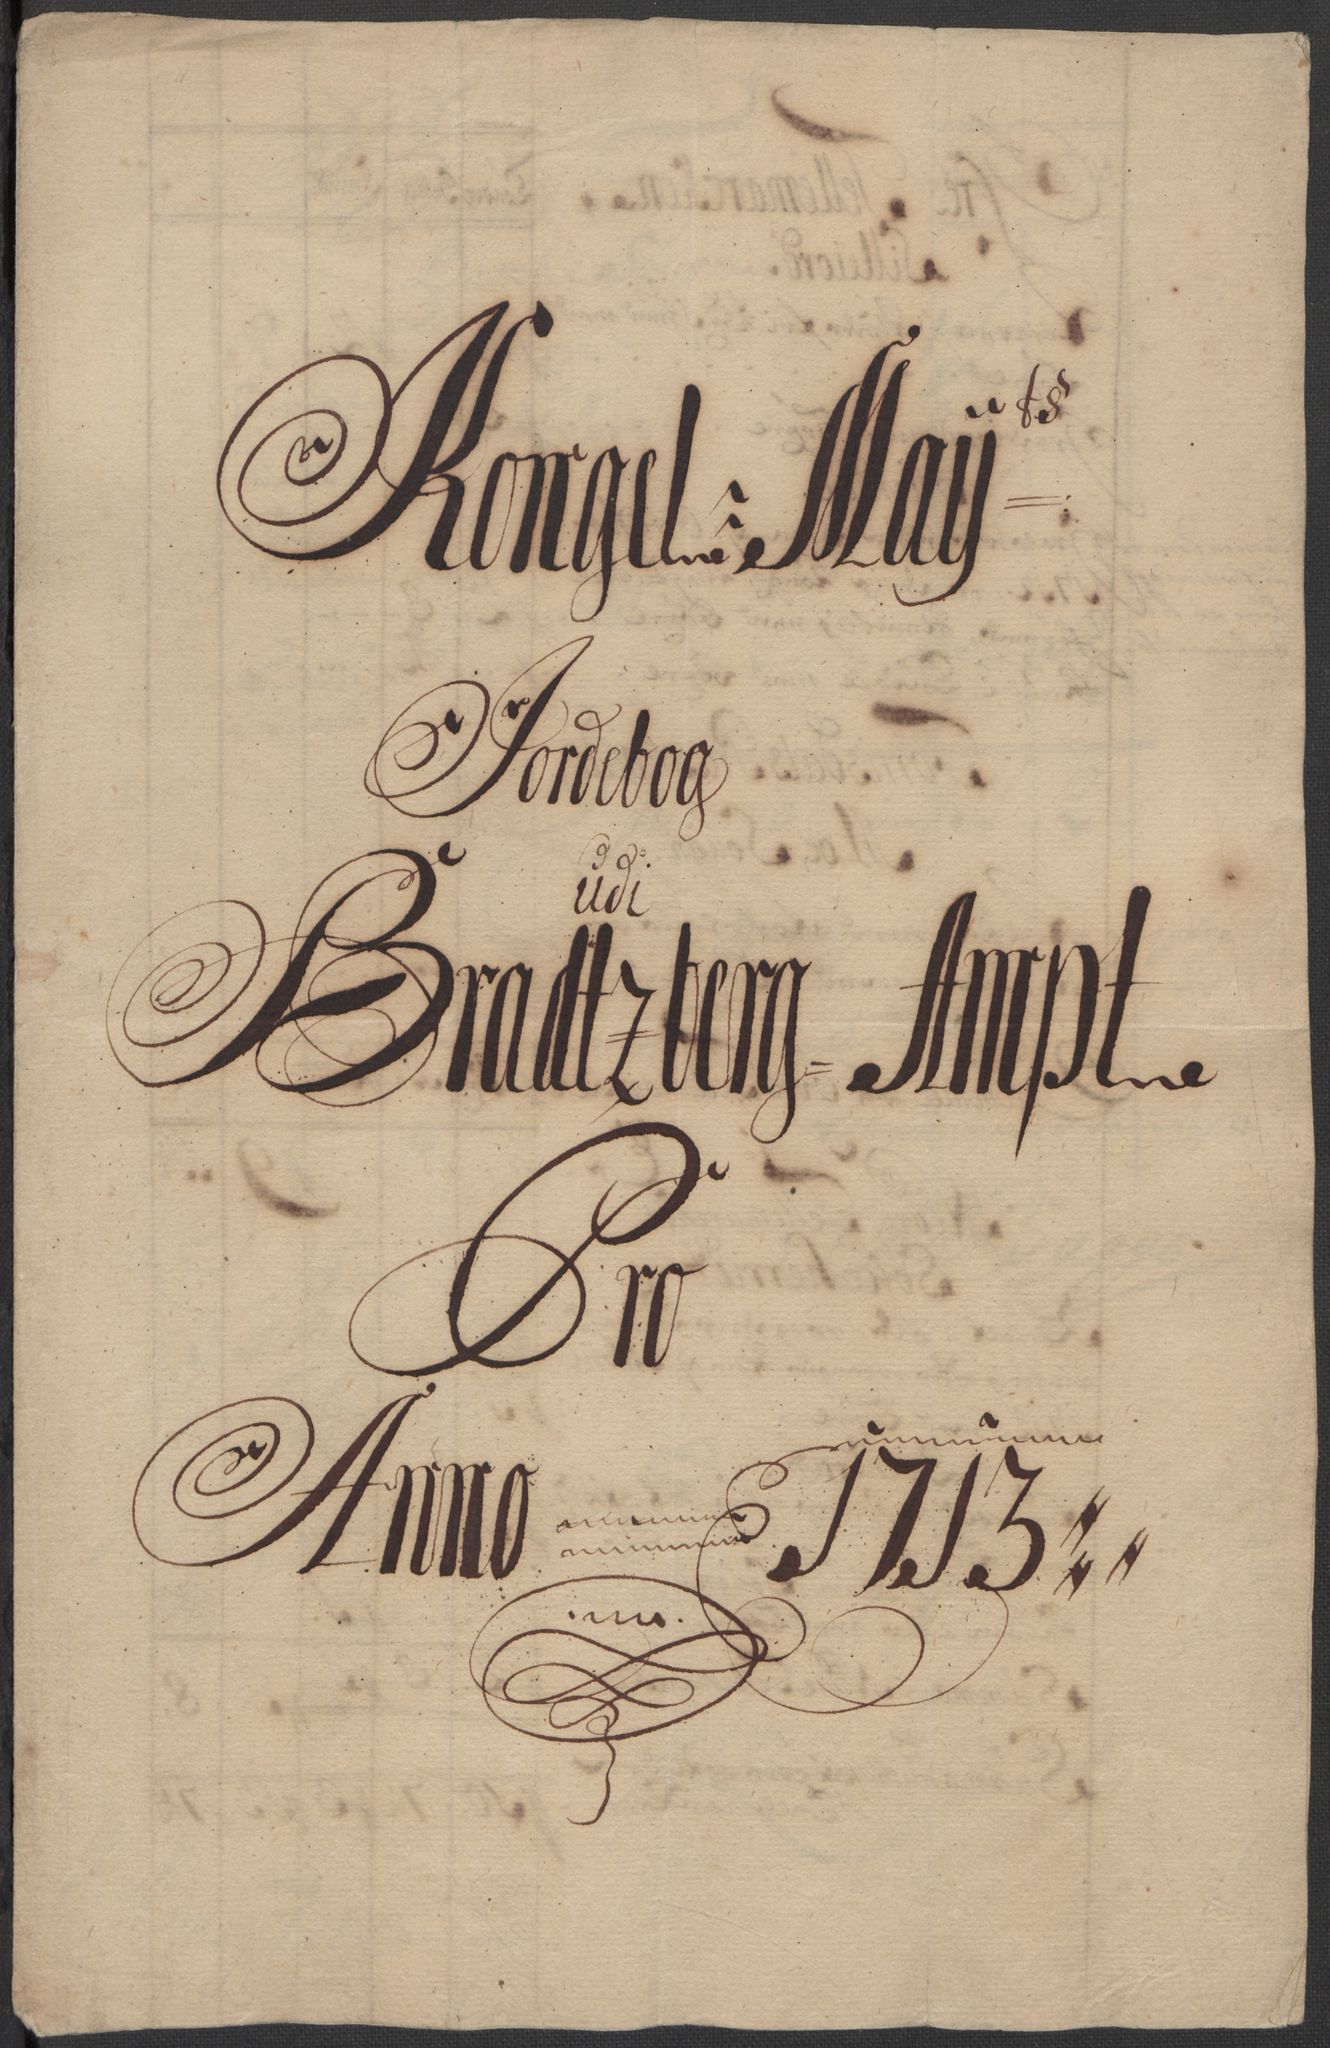 Kongel: Maÿts
Jordebog
udi
Bradtzberg- Ampt
Pro
Anno 1713